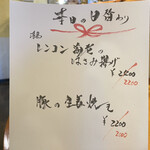 本日の日替わり
レンコン 海老の
はさみ揚げ
¥2200
2200
豚の生姜焼き
¥2200
2100